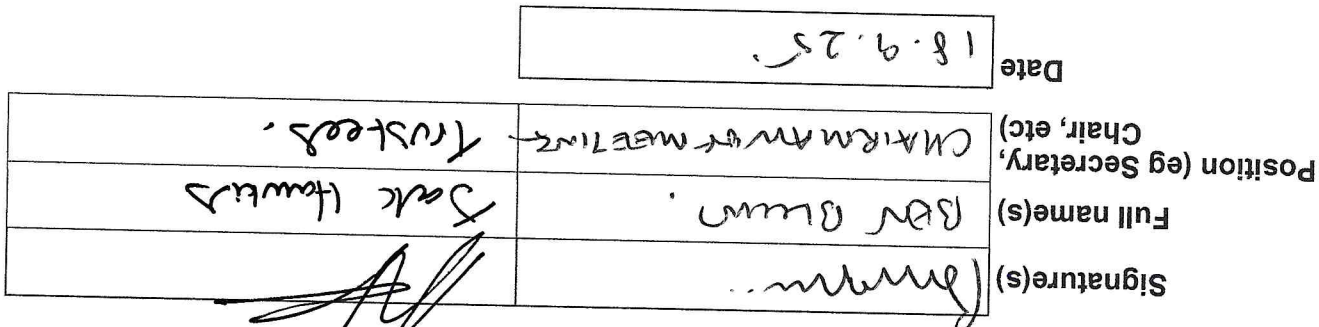 Signature(s)
Full name(s) BEN Jack Hawkins
Position (eg Secretary, Chair, etc) CHAIRMAN OF MEETING Trustees.
Date 18.9.25.